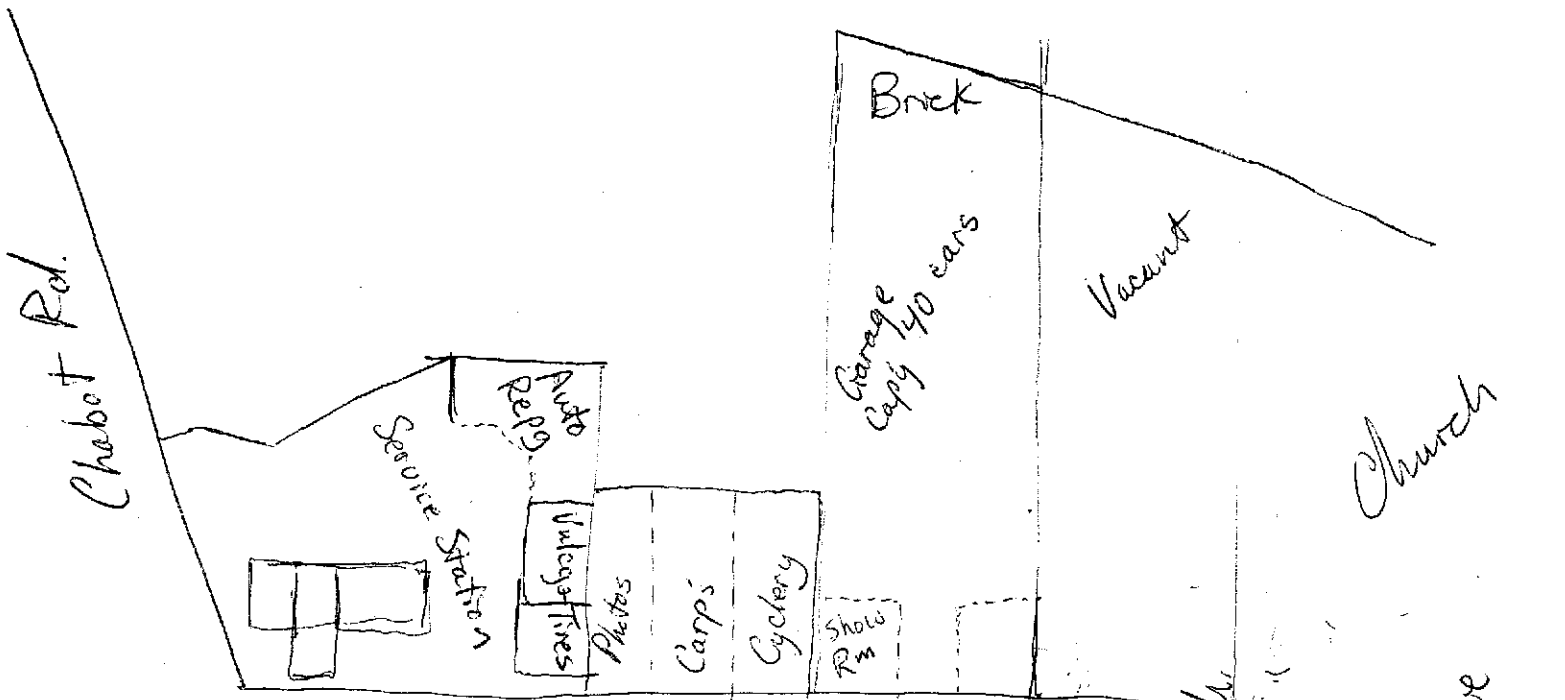 Chabot Rd.
Service Station
Auto
Repg
Vulcg
Tires
Photos
Carp's
Cyclery
Show
Rm
Brick
Garage
Cap'y 40 cars
Vacant
Church